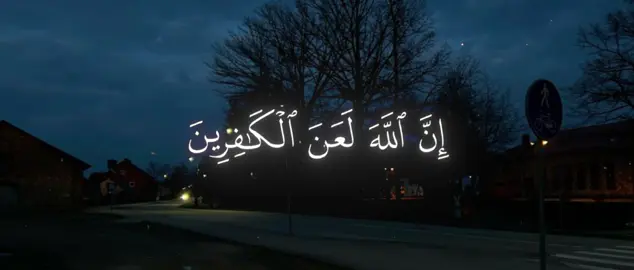 إِنَّ ٱللَّهَ لَعَنَ ٱلۡكَٰفِرِينَ